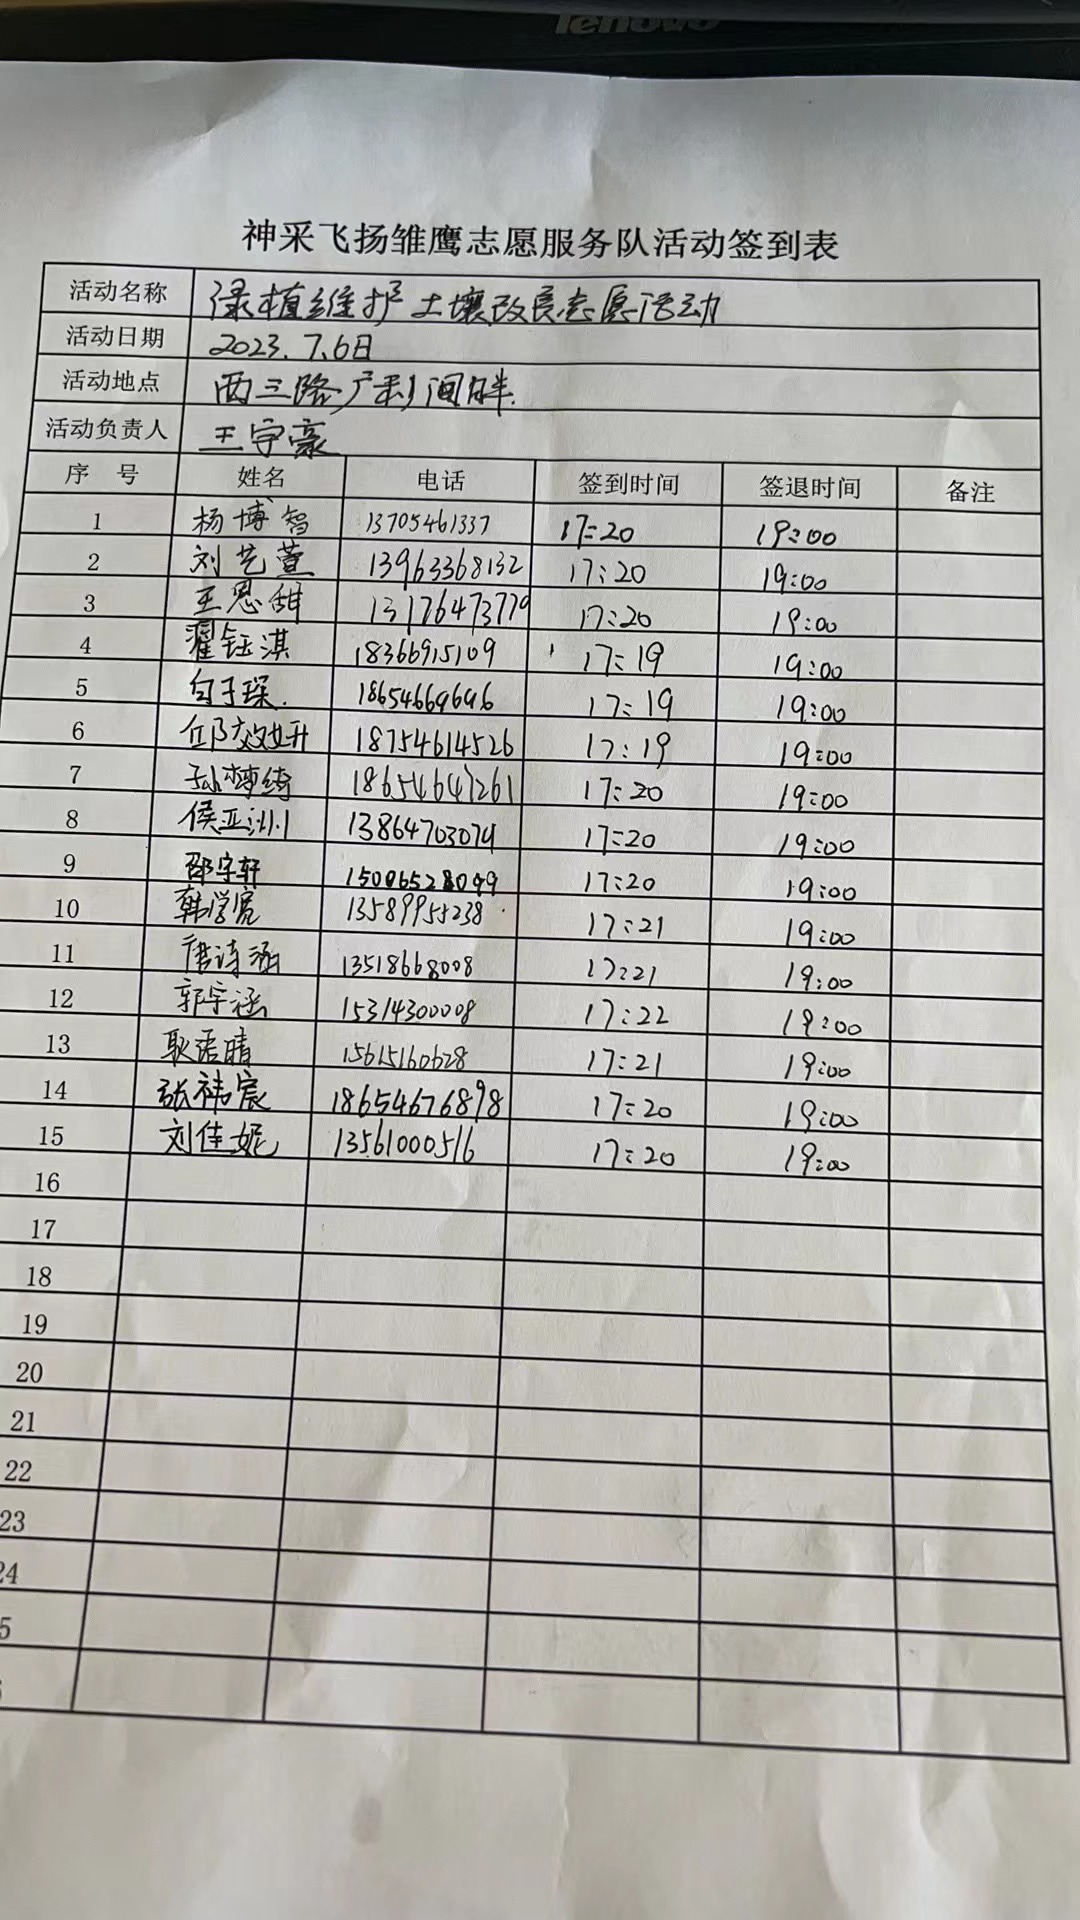 lenovo
神采飞扬雏鹰志愿服务队活动签到表
活动名称 绿植维护土壤改良志愿活动
活动日期 2023.7.6日
活动地点 西三路广利河畔.
活动负责人 王宇豪
序 号 姓名 电话 签到时间 签退时间 备注
1 杨博智 13705461337 17:20 19:00
2 刘艺萱 13963368132 17:20 19:00
3 王恩甜 13176473779 17:20 19:00
4 翟钰淇 18366915109 17:19 19:00
5 勾子琛. 18654669696 17:19 19:00
6 邱效妍 18754614526 17:19 19:00
7 孙梓绮 18654647261 17:20 19:00
8 侯亚汌 13864703079 17:20 19:00
9 邵宇轩 15006528099 17:20 19:00
10 韩学宽 13589955238 17:21 19:00
11 唐诗涵 13518668008 17:21 19:00
12 郭宇涵 15314300008 17:22 19:00
13 耿语晴 15615160628 17:21 19:00
14 张祎宸 18654676898 17:20 19:00
15 刘佳妮 13561000516 17:20 19:00
16
17
18
19
20
21
22
23
24
5